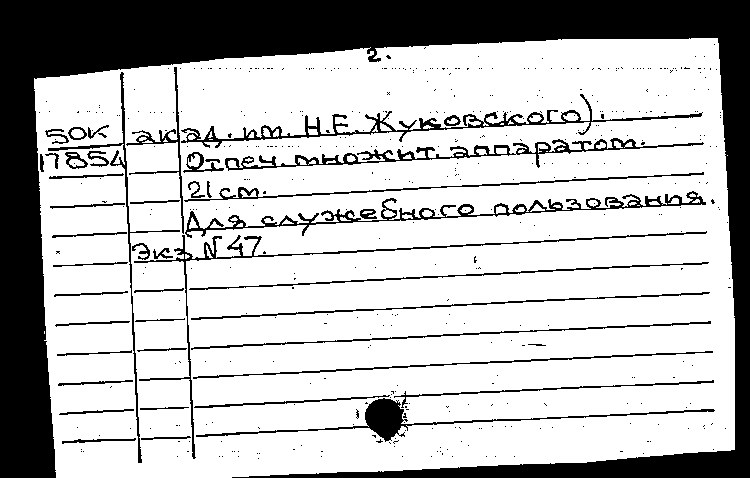 2.
50К акад. им. Н.Е. Жуковского).
17854 Отпеч. множит. аппаратом.
21 см.
Для служебного пользования.
Экз. N 47.